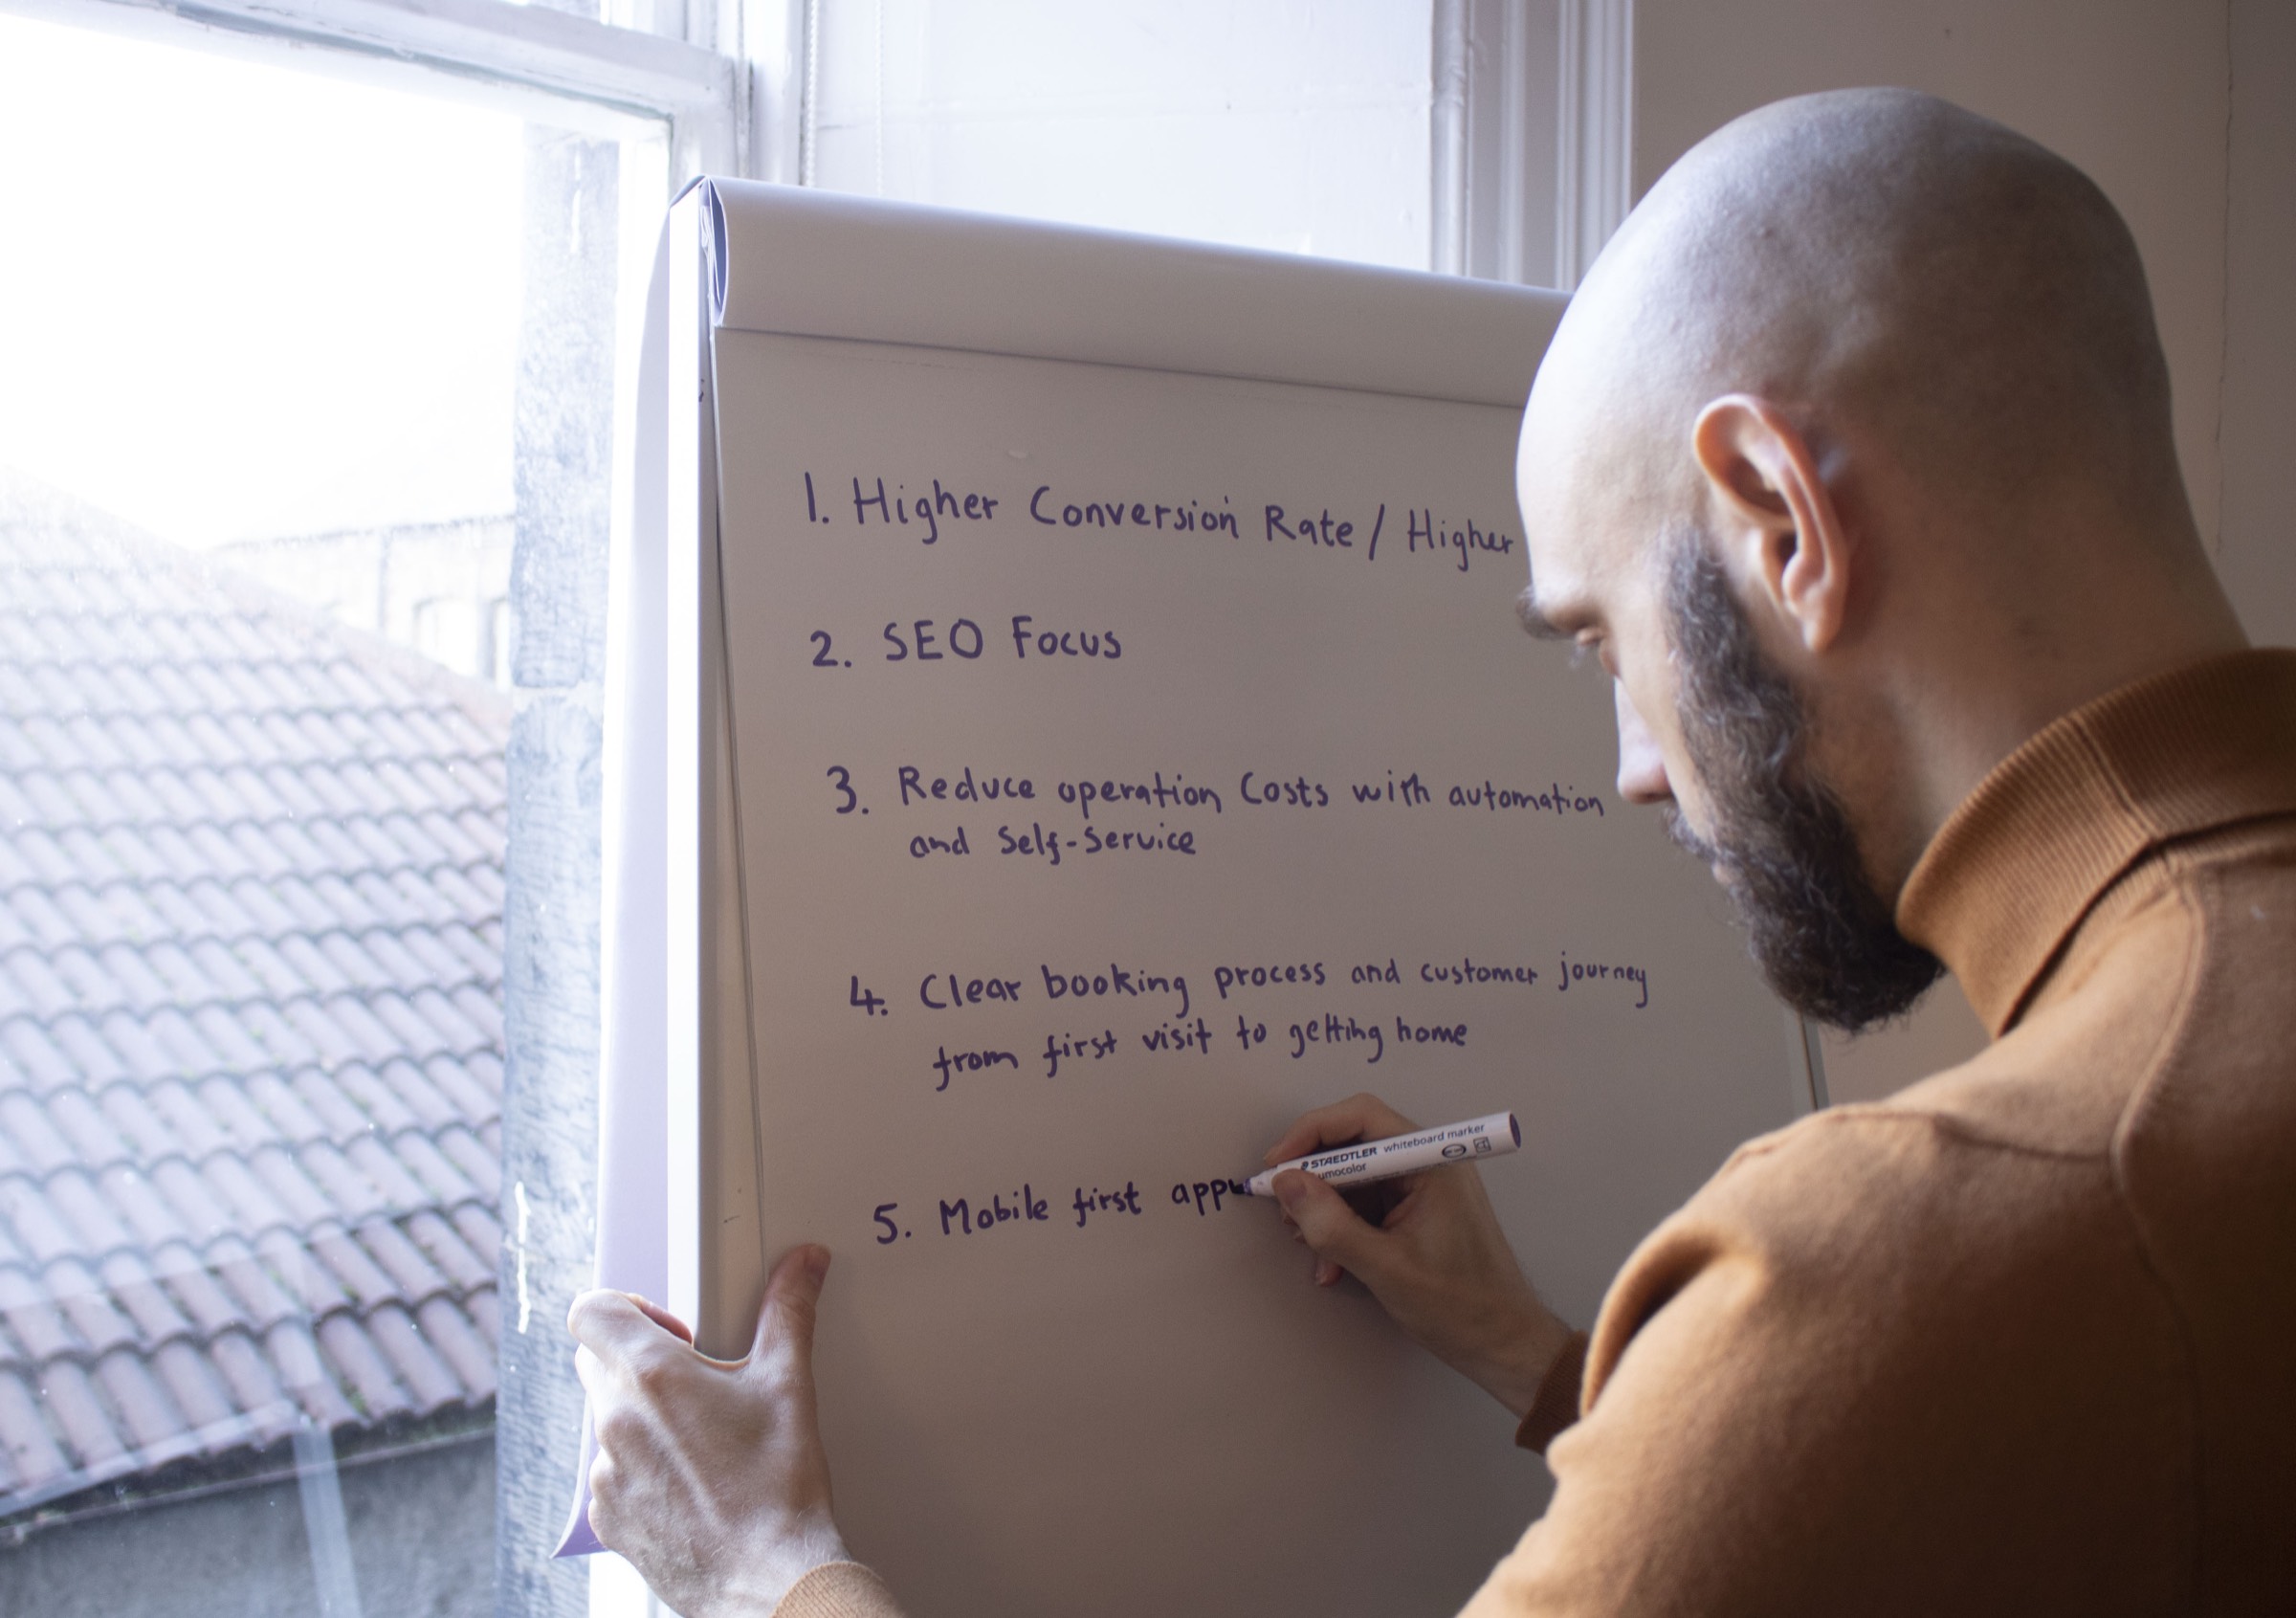 1. Higher Conversion Rate / Higher
2. SEO Focus
3. Reduce operation Costs with automation
and Self-Service
4. Clear booking process and customer journey
from first visit to getting home
5. Mobile first
STAEDTLER whiteboard marker